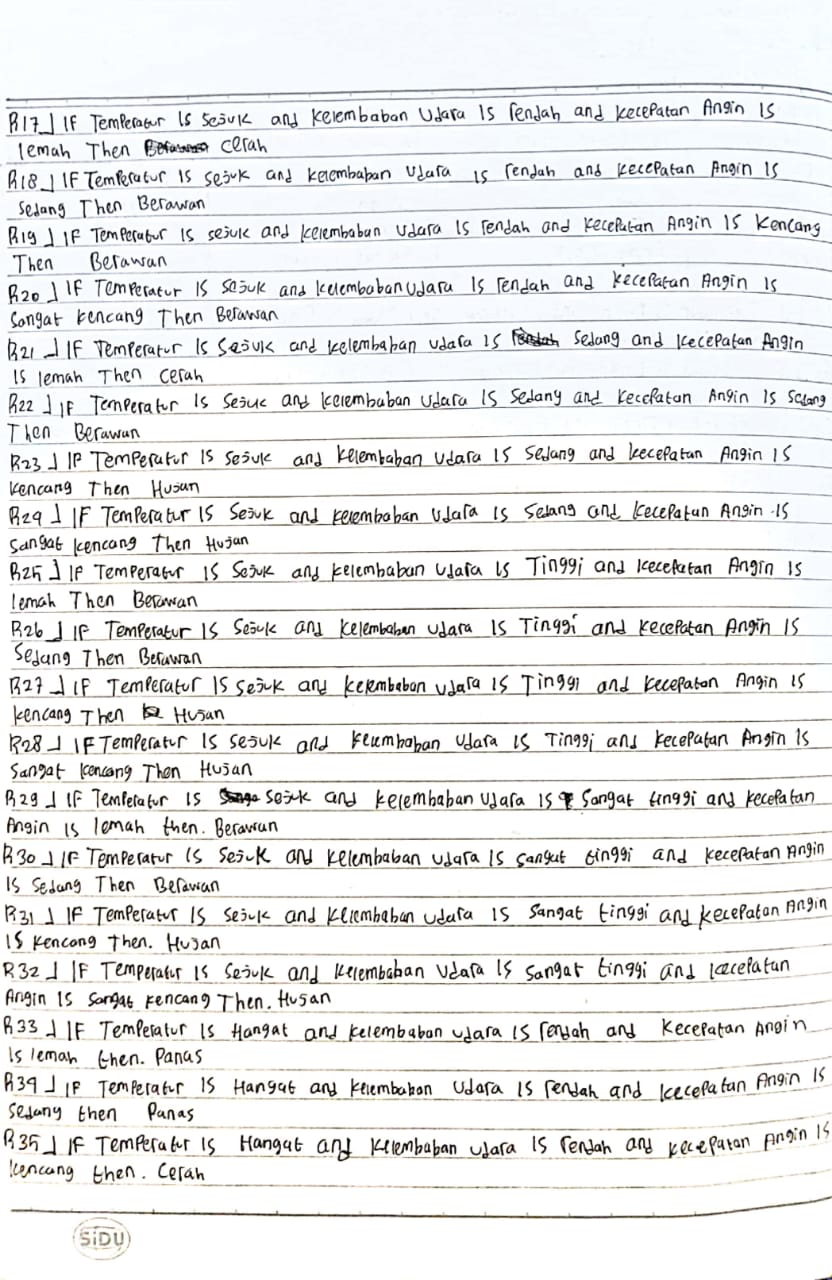 R17] IF Temperatur Is Sejuk and Kelembaban Udara Is rendah and kecepatan Angin IS
lemah Then Cerah
R18] IF Temperatur Is sejuk and kelembaban Udara Is rendah and kecepatan Angin Is
Sedang Then Berawan
R19] IF Temperatur Is sejuk and kelembaban Udara Is rendah and Kecepatan Angin IS Kencang
Then Berawan
R20] IF Temperatur Is Sejuk and Kelembaban Udara Is rendah and kecepatan Angin Is
Sangat kencang Then Berawan
R21] IF Temperatur Is Sejuk and kelembaban udara Is Sedang and kecepatan Angin
Is lemah Then Cerah
R22] IF Temperatur Is Sejuk and kelembaban Udara Is Sedang and kecepatan Angin Is Sedang
Then Berawan
R23] IF Temperatur Is Sejuk and kelembaban Udara Is Sedang and kecepatan Angin IS
Kencang Then Hujan
R24] IF Temperatur Is Sejuk and kelembaban Udara Is Sedang and kecepatan Angin Is
Sangat kencang Then Hujan
R25] IF Temperatur Is Sejuk and kelembaban Udara Is Tinggi and kecepatan Angin Is
lemah Then Berawan
R26] IF Temperatur Is Sejuk and kelembaban udara Is Tinggi and kecepatan Angin Is
Sedang Then Berawan
R27] IF Temperatur Is Sejuk and kelembaban udara Is Tinggi and kecepatan Angin Is
kencang Then Hujan
R28] IF Temperatur Is Sejuk and kelembaban Udara Is Tinggi and kecepatan Angin Is
Sangat Kencang Then Hujan
R29] IF Temperatur Is Sejuk and kelembaban Udara Is Sangat tinggi and kecepatan
Angin Is lemah then. Berawan
R30] IF Temperatur Is Sejuk and kelembaban udara Is Sangat tinggi and kecepatan Angin
Is Sedang Then Berawan
R31] IF Temperatur Is Sejuk and Kelembaban udara IS Sangat tinggi and kecepatan Angin
IS Kencang Then. Hujan
R32] IF Temperatur Is Sejuk and kelembaban Udara Is Sangat tinggi and kecepatan
Angin Is Sangat kencang Then. Hujan
R33] IF Temperatur Is Hangat and kelembaban udara Is rendah and Kecepatan Angin
Is lemah then. Panas
R34] IF Temperatur Is Hangat and Kelembaban Udara Is rendah and kecepatan Angin Is
Sedang then Panas
R35] IF Temperatur Is Hangat and Kelembaban udara Is rendah and kecepatan Angin Is
Kencang then. Cerah
SiDU